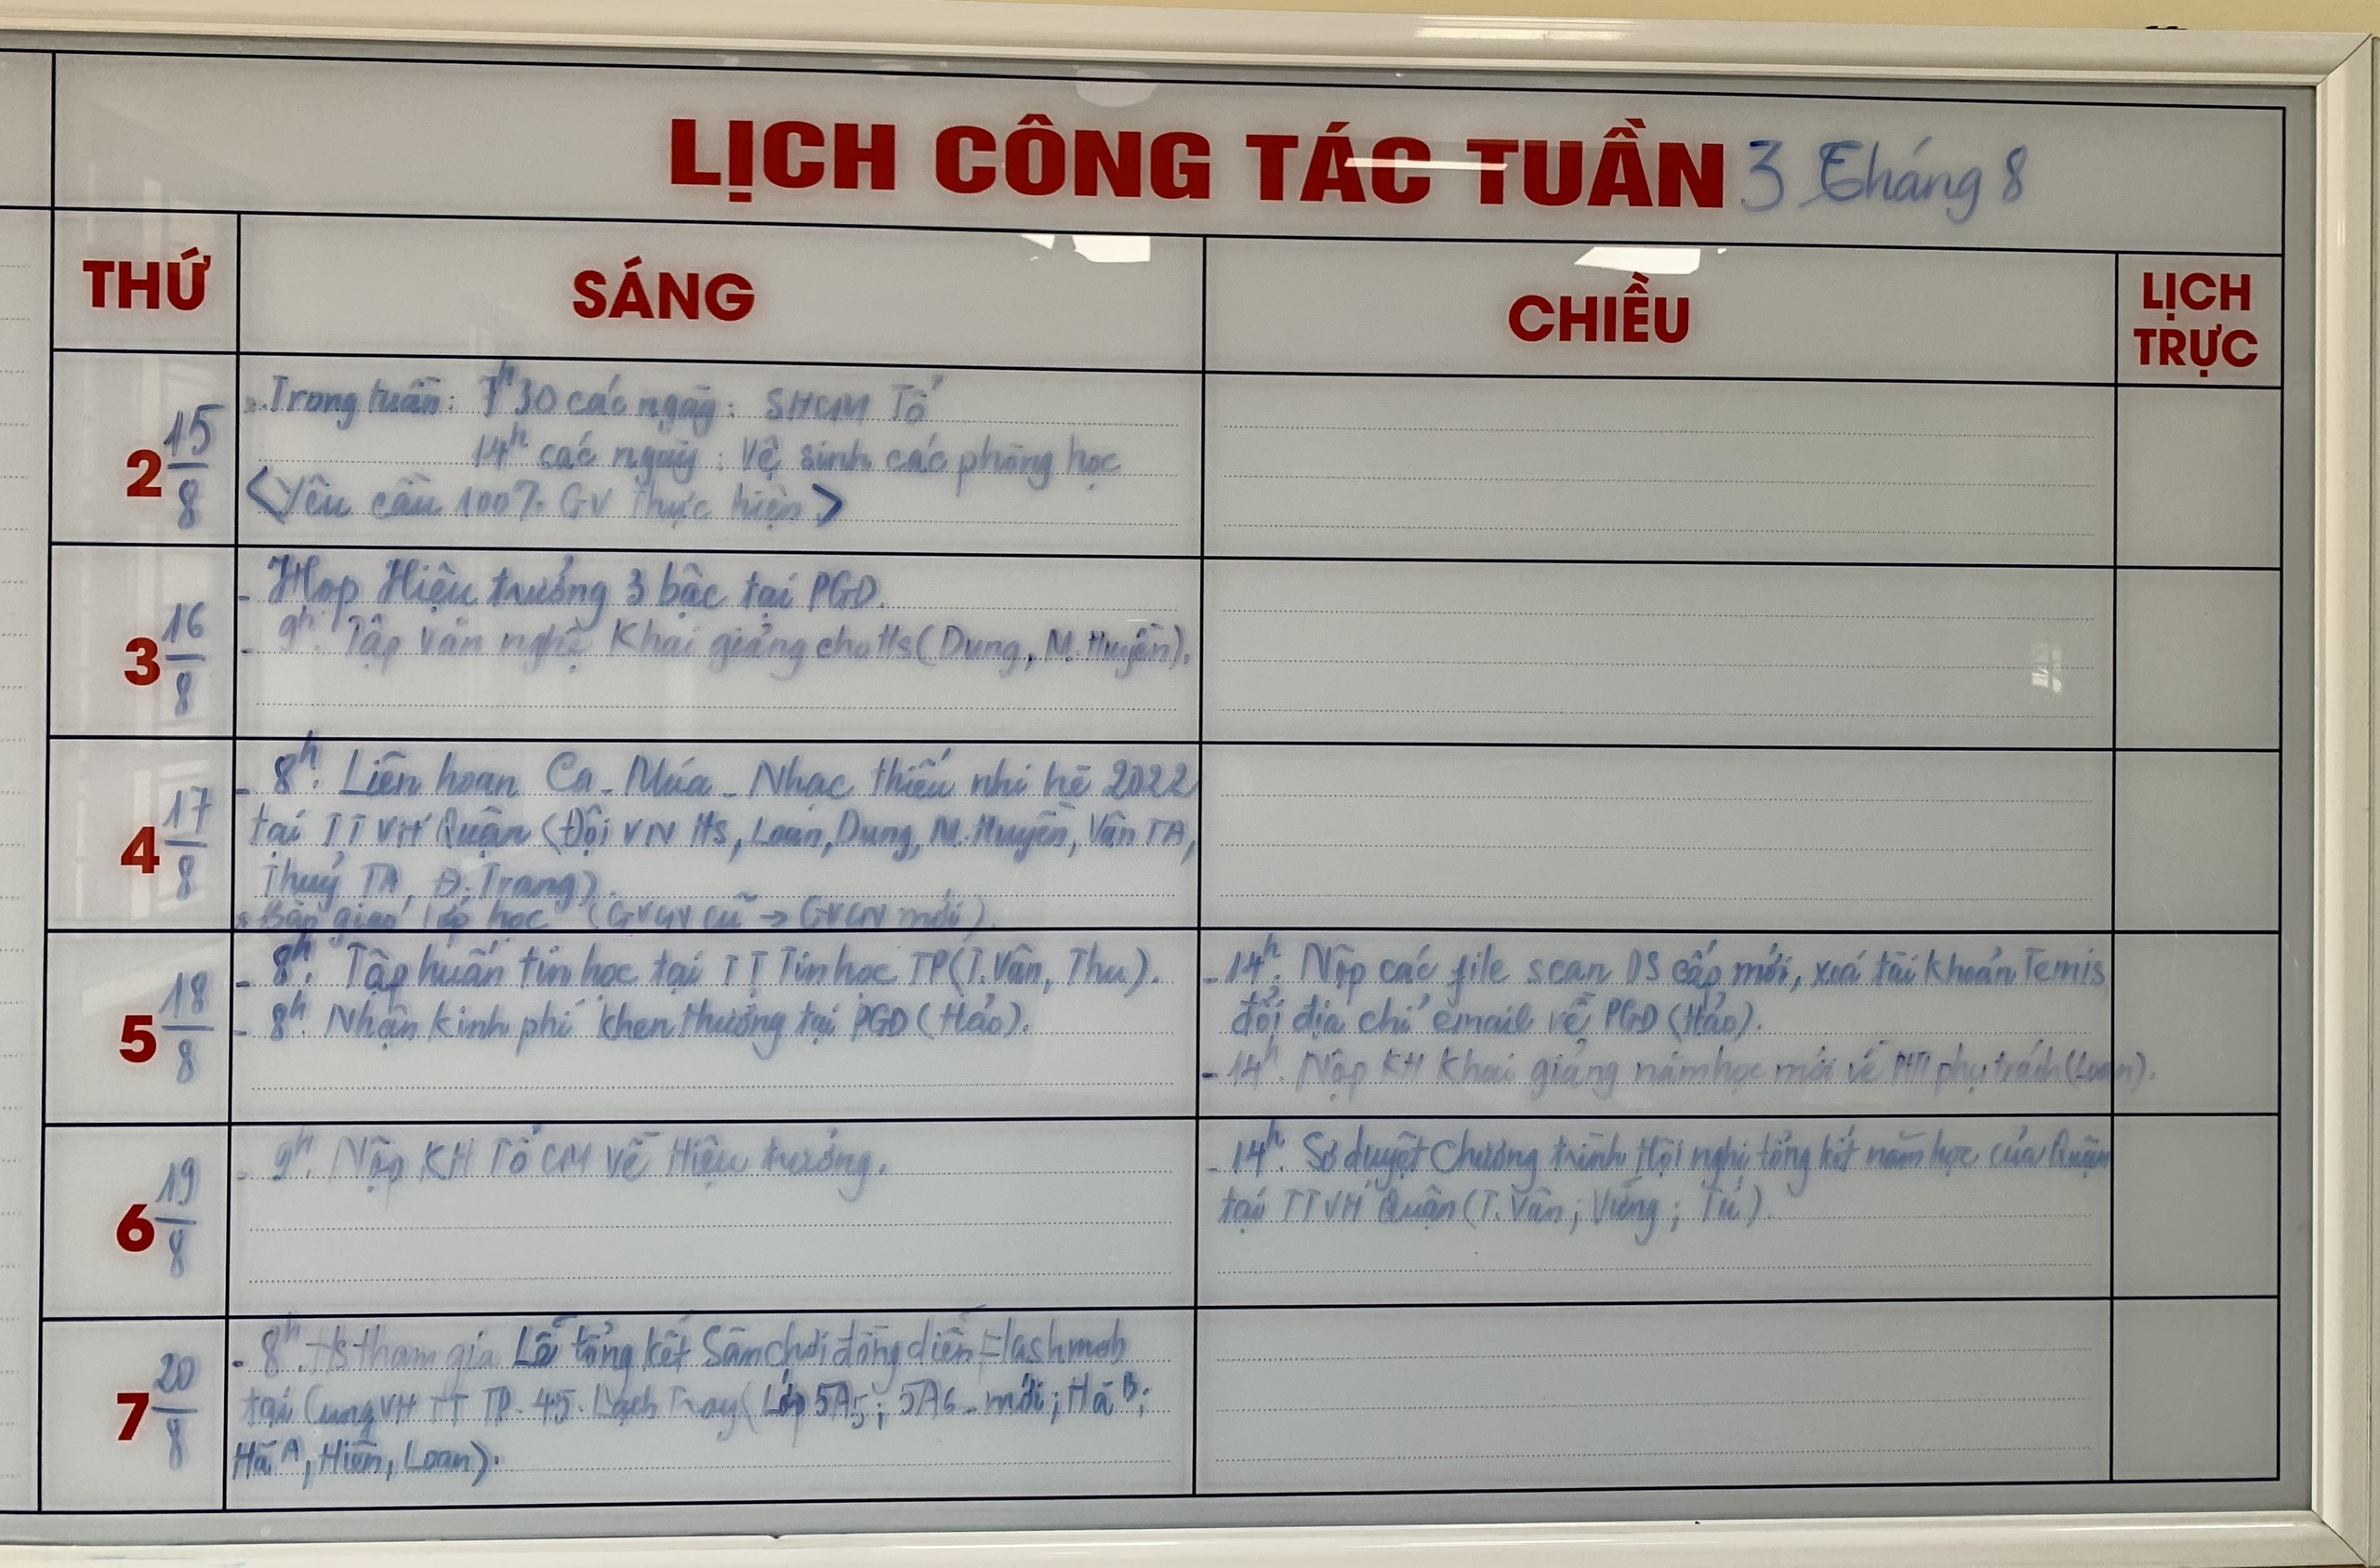 LỊCH CÔNG TÁC TUẦN 3 Tháng 8
THỨ
SÁNG
CHIỀU
LỊCH
TRỰC
2 15/8
- Trong tuần: 7h30 các ngày: SHCM Tổ
14h các ngày: Vệ sinh các phòng học
<Yêu cầu 100% GV thực hiện>
3 16/8
- Họp Hiệu trưởng 3 bậc tại PGD.
- 9h: Tập văn nghệ Khai giảng cho Hs (Dung, M. Huyền).
4 17/8
- 8h: Liên hoan Ca - Múa - Nhạc thiếu nhi hè 2022
tại TTVH Quận (Đội VN Hs, Loan, Dung, M. Huyền, Vân TA,
Thuý TA, Đ. Trang).
- Bàn giao lớp học (GVCN cũ → GVCN mới).
5 18/8
- 8h: Tập huấn tin học tại TT Tin học TP (T. Vân, Thu).
- 8h: Nhận kinh phí khen thưởng tại PGD (Hảo).
- 14h. Nộp các file scan DS cấp mới, xoá tài khoản Temis
đổi địa chỉ email về PGD (Hảo).
- 14h. Nộp KH Khai giảng năm học mới về PHT phụ trách (Loan).
6 19/8
- 9h. Nộp KH Tổ CM về Hiệu trưởng.
- 14h. Sơ duyệt Chương trình Hội nghị tổng kết năm học của Quận
tại TTVH Quận (T. Vân; Vững; Tú).
7 20/8
- 8h. Hs tham gia Lễ tổng kết Sân chơi đồng diễn Flashmob
tại Cung VH TT TP - 45 - Lạch Tray (Lớp 5A5; 5A6 - mới; Hà B;
Hà A, Hiền, Loan).